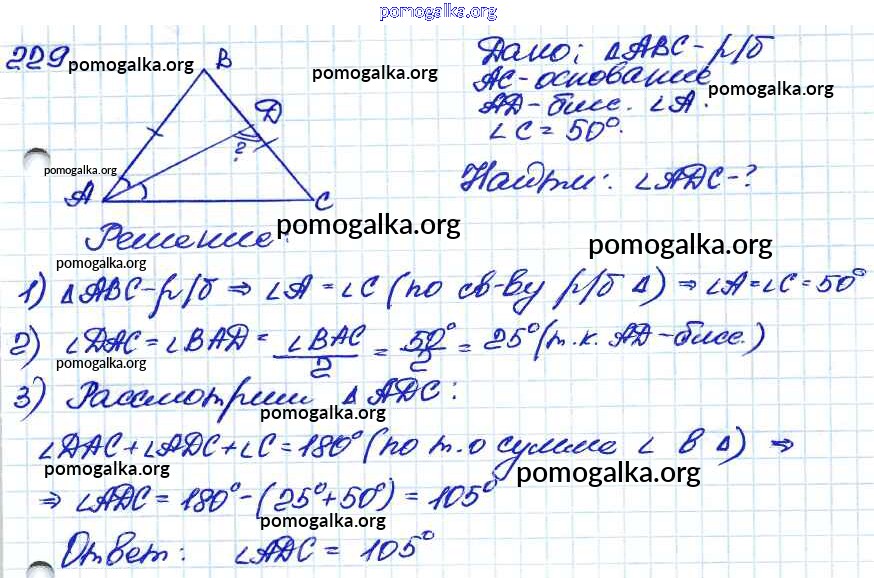 pomogalka.org
229 pomogalka.org
B
D
?
A
C
pomogalka.org
pomogalka.org
Дано: △ABC - р/б
AC - основание
pomogalka.org
AD - бисс. ∠A.
∠C = 50°.
Найти: ∠ADC - ?
Решение:
pomogalka.org
pomogalka.org
pomogalka.org
1) △ABC - р/б ⇒ ∠A = ∠C (по св-ву р/б △) ⇒ ∠A = ∠C = 50°
2) ∠DAC = ∠BAD = ∠BAC/2 = 50°/2 = 25° (т.к. AD - бисс.)
pomogalka.org
3) Рассмотрим △ADC:
pomogalka.org
∠DAC + ∠ADC + ∠C = 180° (по т. о сумме ∠ в △) ⇒
pomogalka.org
pomogalka.org
⇒ ∠ADC = 180° - (25° + 50°) = 105°
pomogalka.org
Ответ: ∠ADC = 105°